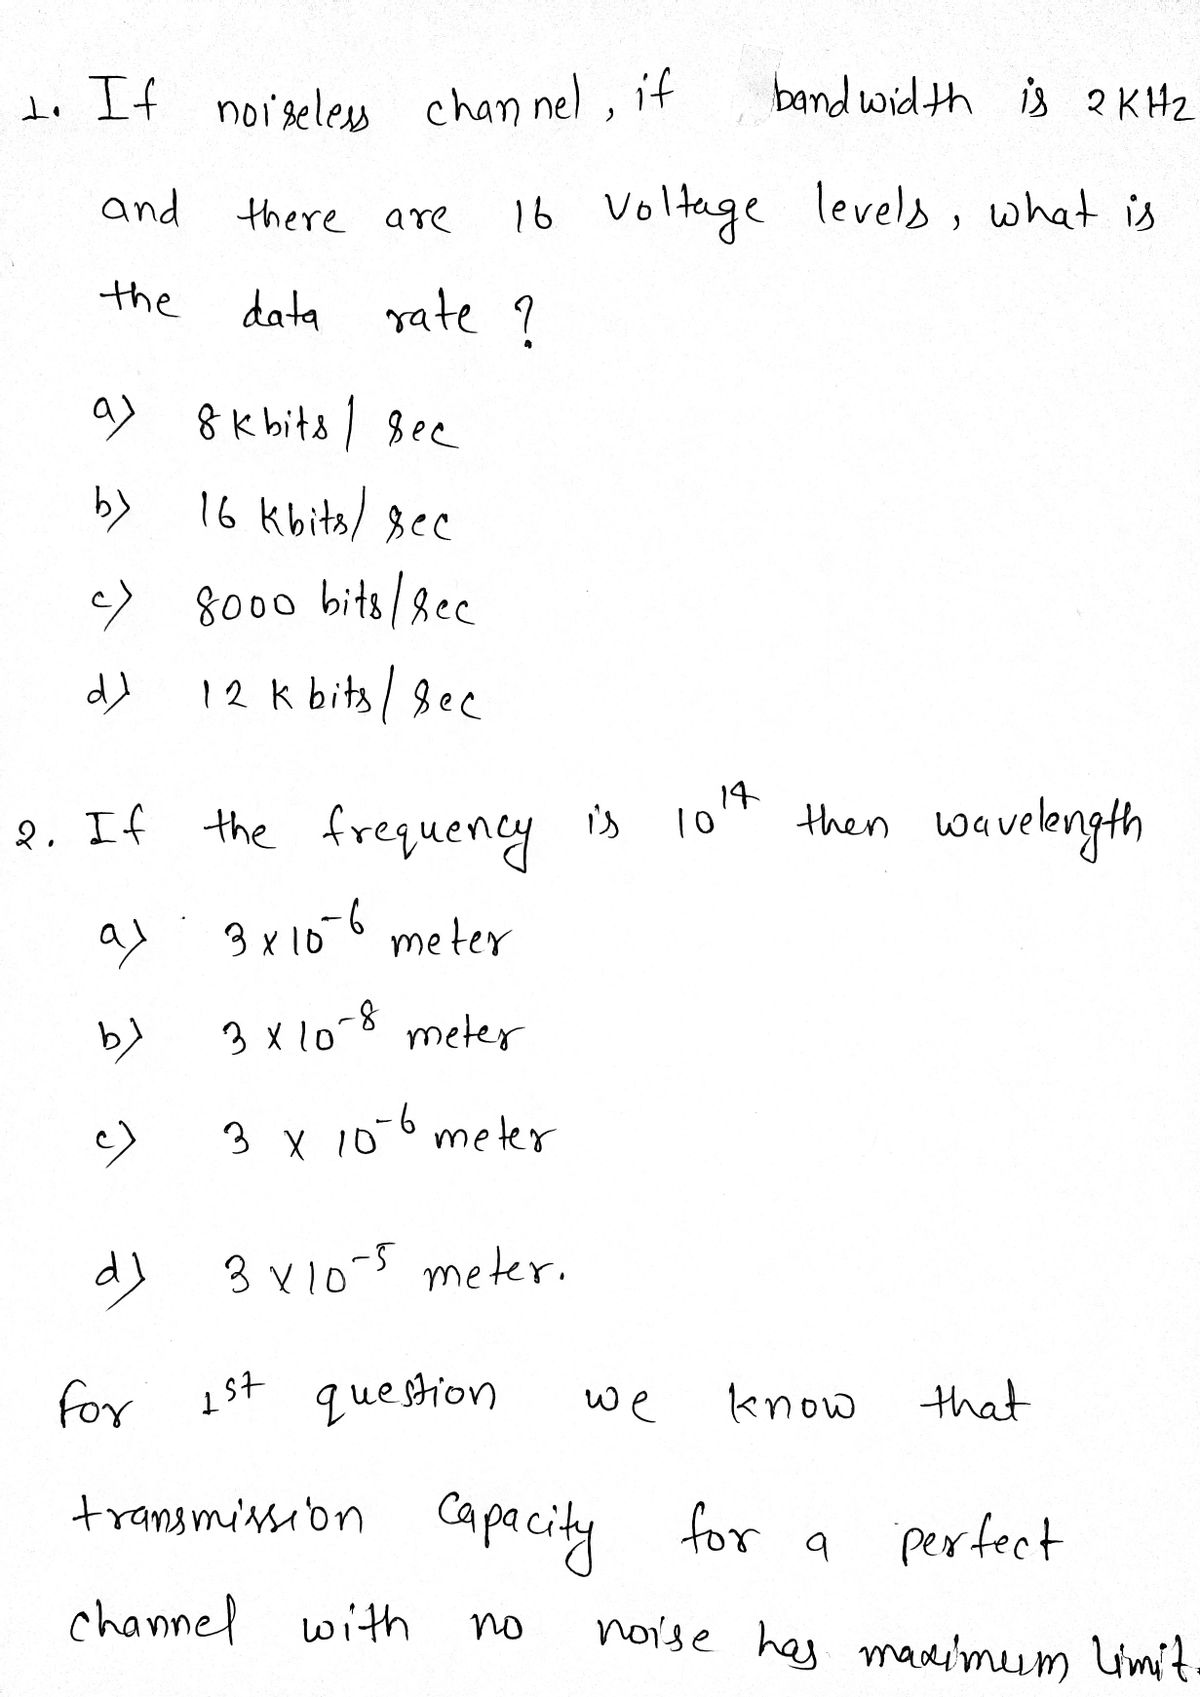 1. If noiseless channel, if bandwidth is 2 KHz
and there are 16 Voltage levels, what is
the data rate ?
a) 8 K bits / sec
b) 16 Kbits/ sec
c) 8000 bits/sec
d) 12 K bits/ sec
2. If the frequency is 10^14 then wavelength
a) 3 x 10^-6 meter
b) 3 x 10^-8 meter
c) 3 x 10^-6 meter
d) 3 x 10^-5 meter.
for 1st question we know that
transmission Capacity for a perfect
channel with no noise has maximum limit.